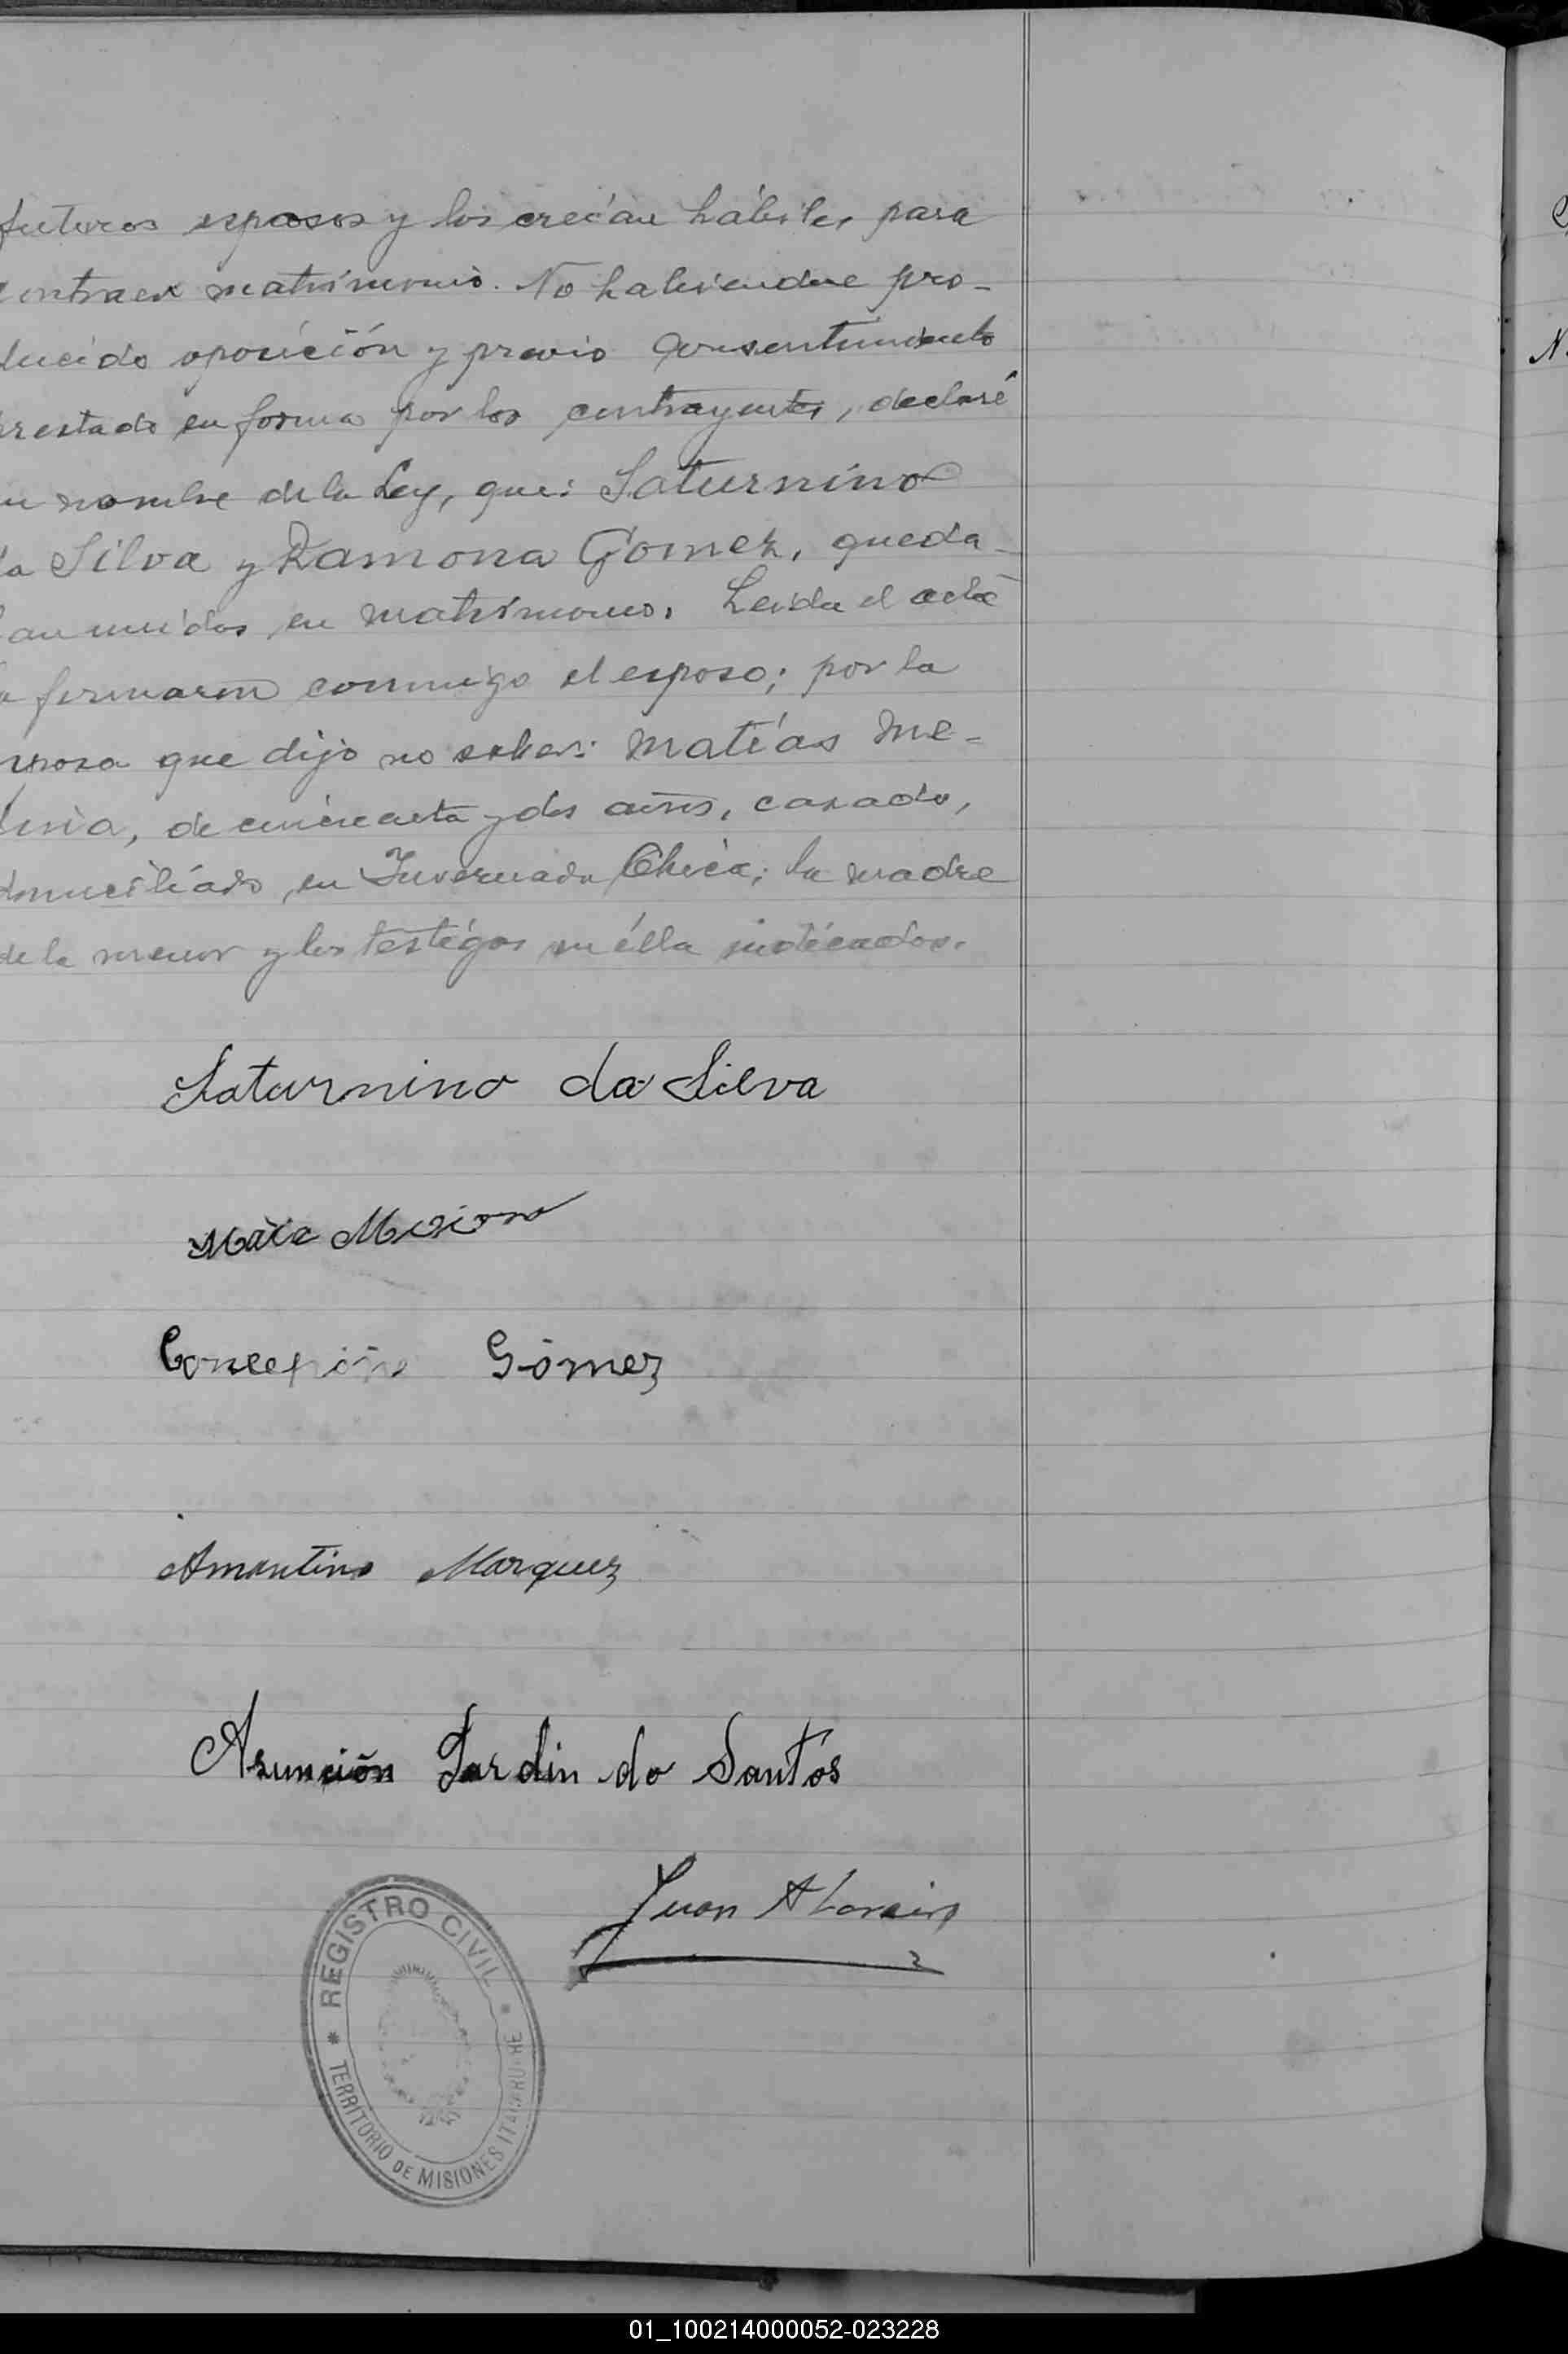 futuros esposos y los creían hábiles para
contraer matrimonio. No habiendose pro-
ducido oposición y previo consentimiento
prestado en forma por los contrayentes, declaré
en nombre de la Ley, que: Saturnino
da Silva y Ramona Gomez, queda-
ban unidos en matrimonio. Leida el acta
la firmaron conmigo el esposo; por la
esposa que dijo no saber: Matías Me-
de cincuenta y dos años, casado,
domiciliado en Invernada Chica; la madre
de la menor y los testigos en élla indicados.
Saturnino da Silva
Concepción Gómez
Amantino Marquez
Asunción Jardin do Santos
Juan A
REGISTRO CIVIL
* TERRITORIO DE MISIONES ITACARUARE *
N
01_100214000052-023228